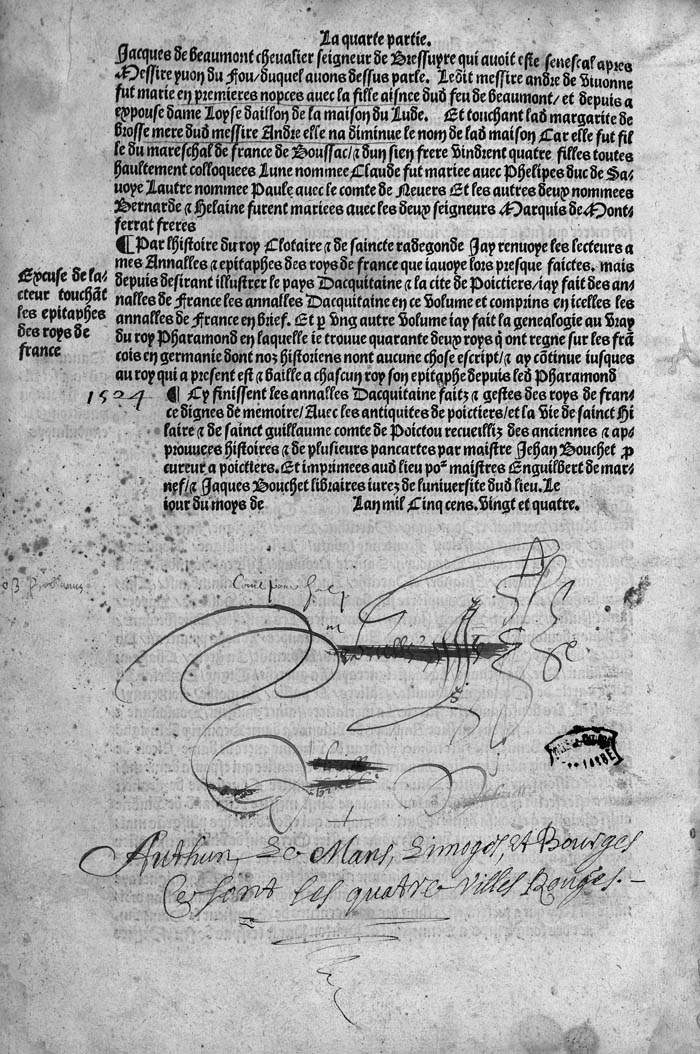 La quarte partie.
Jacques de beaumont chevalier seigneur de Bressuyre qui avoit este senescal apres
Messire yvon du Fou/duquel avons dessus parle. Ledit messire andre de vivonne
fut marie en premieres nopces avec la fille aisnee dud feu de beaumont/ et depuis a
expouse dame Loyse daillon de la maison du Lude. Et touchant lad margarite de
brosse mere dud messire Andre elle na diminue le nom de lad maison Car elle fut fil
le du mareschal de france de Boussac/⁊ dun sien frere vindrent quatre filles toutes
haultement colloquees Lune nommee Claude fut mariee avec Phelipes duc de Sa-
voye Lautre nommee Paule avec le comte de Nevers Et les autres deux nommees
Bernarde ⁊ Helaine furent mariees avec les deux seigneurs Marquis de Mont-
ferrat freres
¶ Par lhistoire du roy Clotaire ⁊ de saincte radegonde Jay renvoye les lecteurs a
mes Annalles ⁊ epitaphes des roys de france que iavoye lors presque faictes. mais
depuis desirant illustrer le pays Dacquitaine ⁊ la cite de Poictiers/iay fait des an-
nalles de France les annalles Dacquitaine en ce volume et comprins en icelles les
annalles de France en brief. Et p vng autre volume iay fait la genealogie au vray
du roy Pharamond en laquelle ie trouve quarante deux roys q̃ ont regne sur les frã
cois en germanie dont noz historiens nont aucune chose escript/⁊ ay cõtinue iusques
au roy qui a present est ⁊ baille a chascun roy son epitaphe depuis led Pharamond
Excuse de la-
cteur touchãt
les epitaphes
des roys de
france
1524
¶ Cy finissent les annalles Dacquitaine faitz ⁊ gestes des roys de fran-
ce dignes de memoire/Avec les antiquitez de poictiers/et la vie de sainct Hi
laire ⁊ de sainct guillaume comte de Poictou recueilliz des anciennes ⁊ ap-
prouvees histoires ⁊ de plusieurs pancartes par maistre Jehan Bouchet p
cureur a poictiers. Et imprimees aud lieu po² maistres Enguilbert de mar-
nef/⁊ Jaques Bouchet libraires iurez de luniversite dud lieu. Le
iour du moys de Lan mil Cinq cens. vingt et quatre.
Authun, Le Mans, Limoges, Et Bourges
Ce sont les quatre villes Rouges.